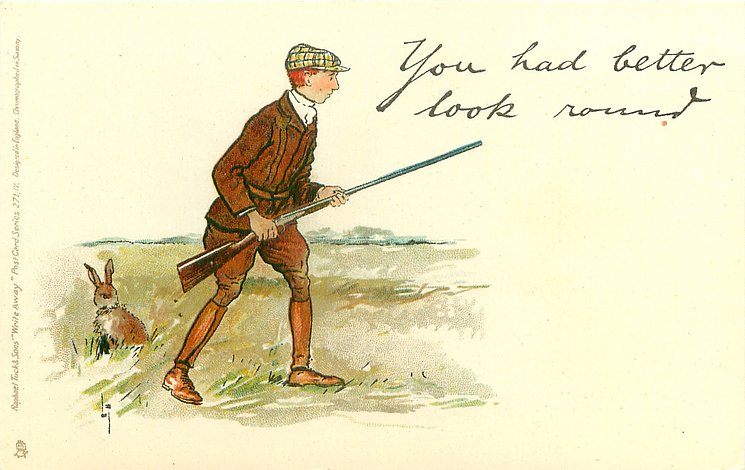 You had better
look round
Raphael Tuck & Sons "Write Away" Post Card Series 271. IV. Designed in England. Chromographed in Saxony.